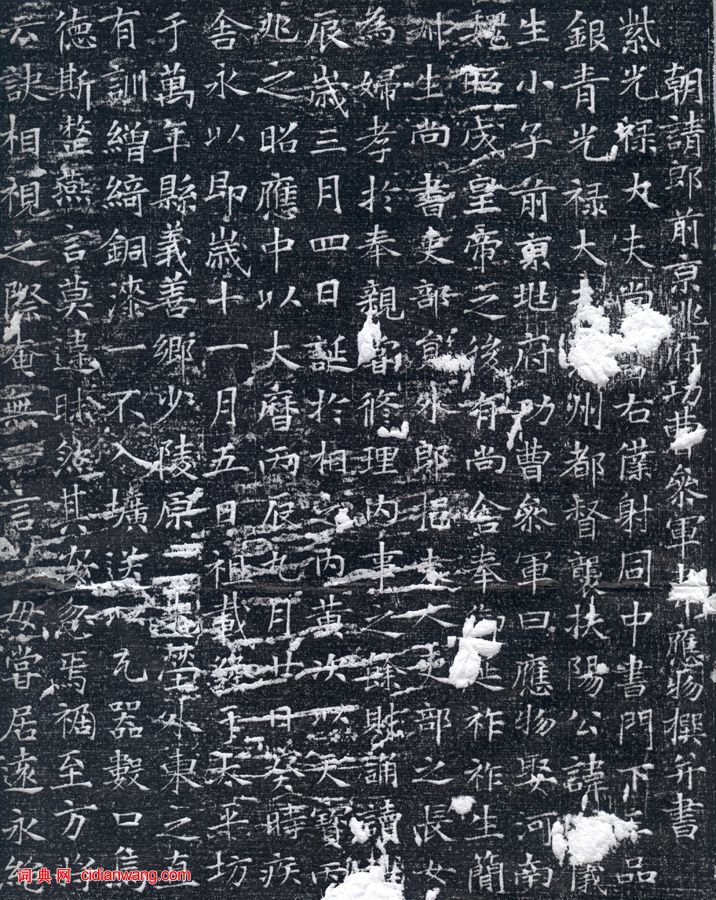 朝請郎前京兆府功曹參軍韋應物撰并書
紫光祿大夫尚書右僕射同中書門下三品
銀青光祿大州都督襲扶陽公諱儀
生小子前京兆府功曹參軍曰應物娶河南
魏昭成皇帝之後有尚舍奉御延祚祚生簡
州生尚書吏部員外郎挹夫人吏部之長女
為婦孝於奉親嘗修理內事之餘則誦讀詩
辰歲三月四日誕於相之內黃次以天寶丙
兆之昭應中以大曆丙辰九月廿日癸時疾
舍永以即歲十一月五日祖載終于太平坊
于萬年縣義善鄉少陵原先塋外東之直
有訓繒綺銅漆一不入壙送以瓦器數口烏
德斯整燕言莫違昧然其安忽焉禍至方將
云訣相視之際奄無一言毋嘗居遠永絕
词典网 cidianwang.com